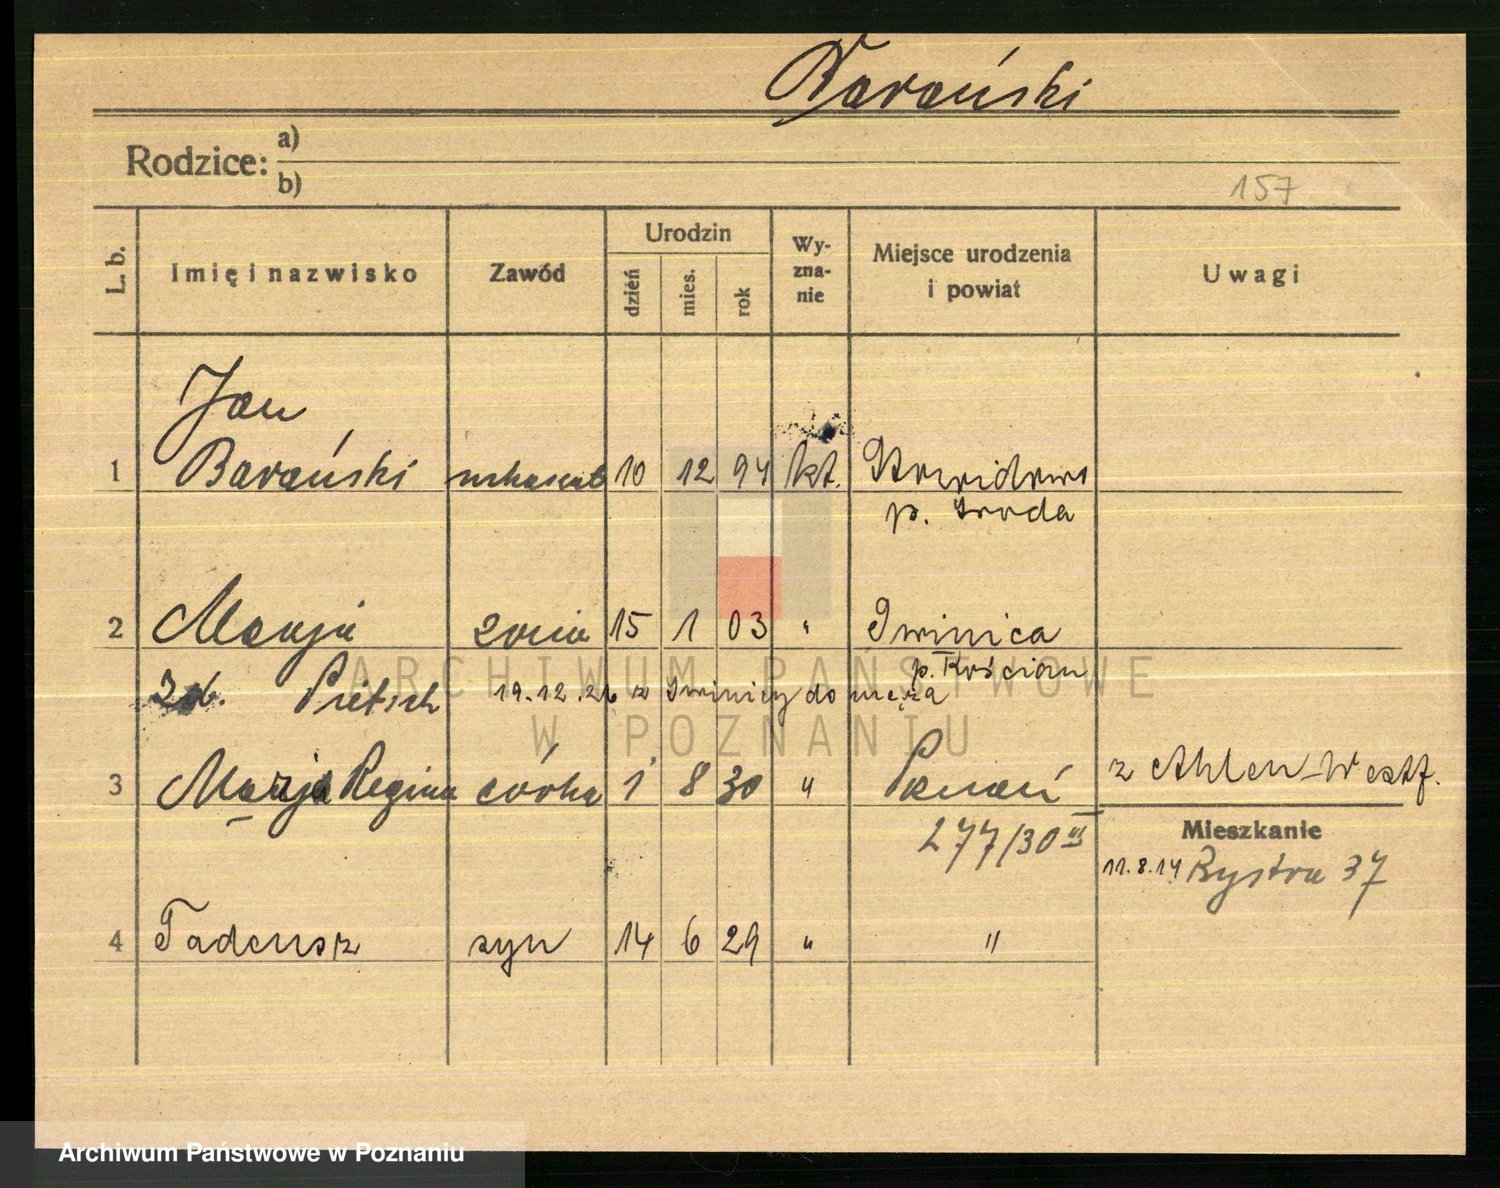 Barański
Rodzice: a)
b)
157
L. b. Imię i nazwisko Zawód Urodzin dzień mies. rok Wy-zna-nie Miejsce urodzenia i powiat Uwagi
Jan
1 Barański 10 12 94 kt.
p. Środa
2 Marja żona 15 1 03 " Iwinica
p. Kościan
Zd. Pietsch 19.12.26 z Iwinicy do męża
3 Marja Regina córka 1 8 30 " Poznań z Ahlen-Westf.
277/30 III
Mieszkanie
11.8.14 Bystra 37
4 Tadeusz syn 14 6 29 " "
ARCHIWUM PAŃSTWOWE
W POZNANIU
Archiwum Państwowe w Poznaniu